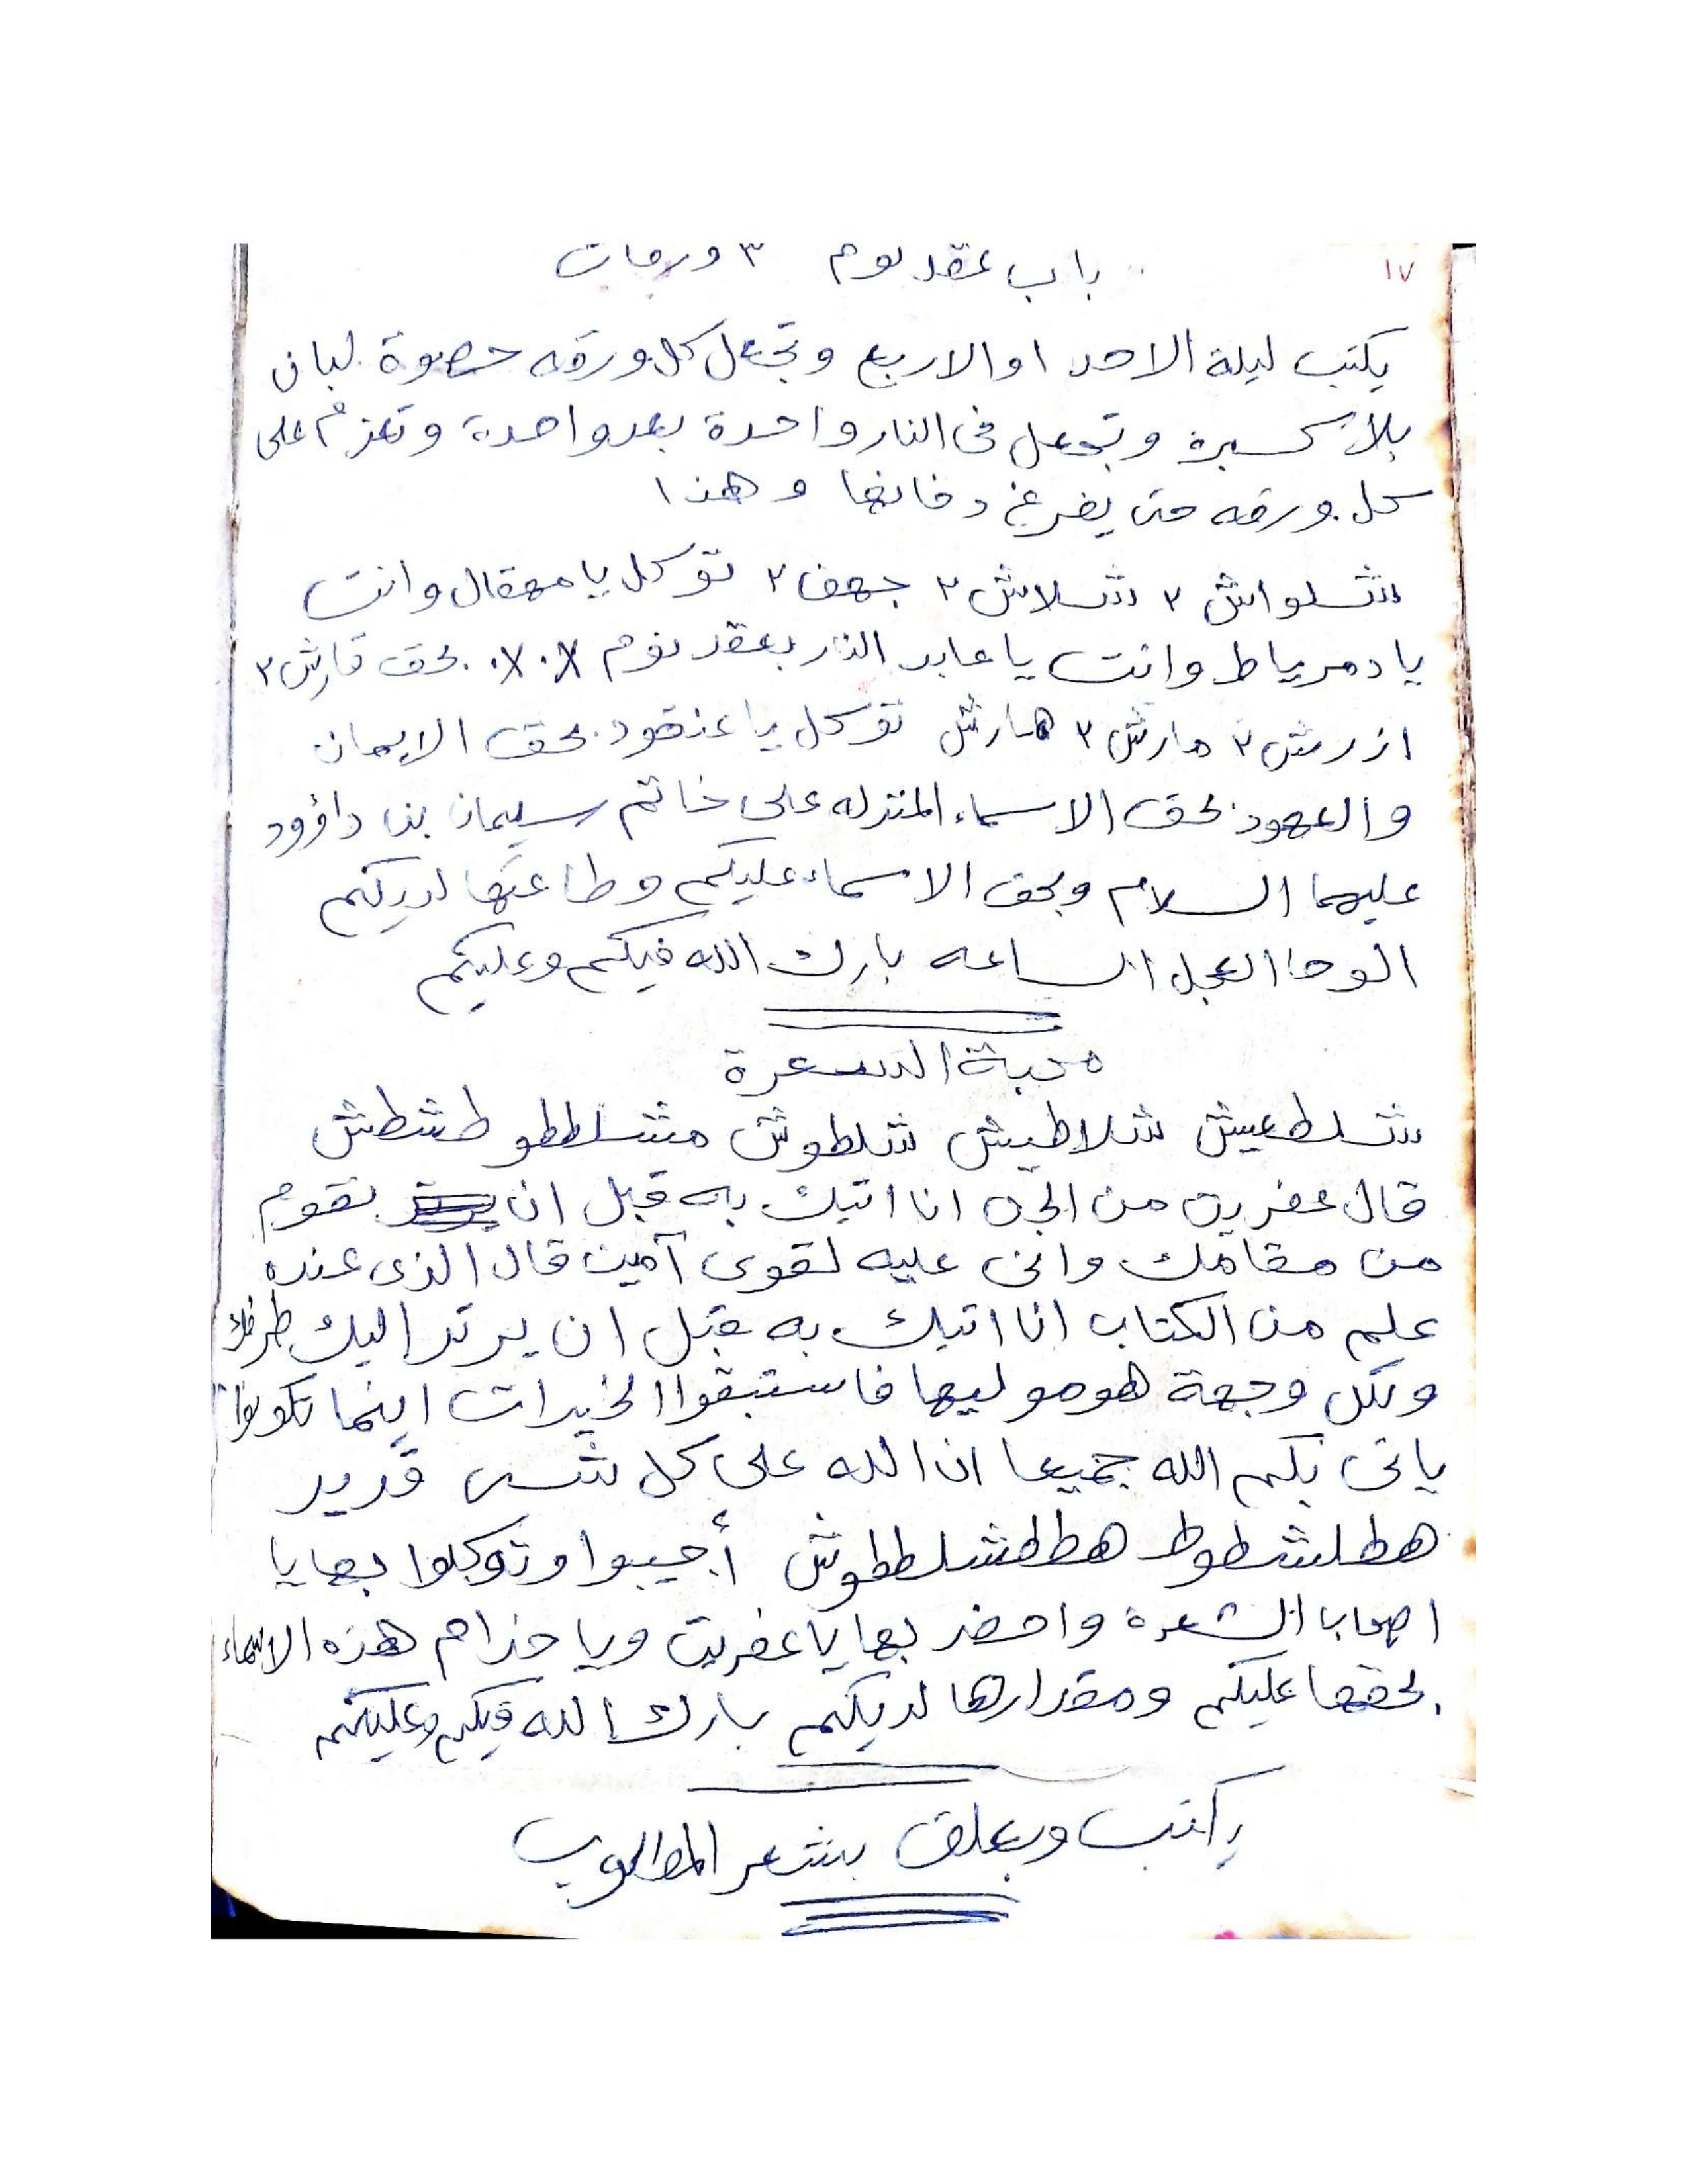 ١٧
باب عقد نوم ٣ ورقات
يكتب ليلة الاحد او الاربع وتجعل كل ورقه حصوة لبان
وتجعل فى النار واحدة بعد واحدة وتعزم على
كل ورقه حتى يفرغ دخانها وهذا
شلواش ٢ شلاش ٢ جهف ٢ توكل يا مهقال وانت
يا دمرياط وانت يا عابد النار بعقد نوم ٪ ٪ بحق قارش ٣
ازرش ٣ مارش ٣ هارش توكل يا عنقود بحق الايمان
والعهود بحق الاسماء المنزله على خاتم سليمان بن داؤود
عليهما السلام وبحق الاسماء عليكم وطاعتها لديكم
الوحا العجل الساعه بارك الله فيكم وعليكم
محبة الشعرة
شلطعيش شلاطيش شلطوش مشلططو طشطش
قال عفريت من الجن انا اتيك به قبل ان تقوم
من مقامك وانى عليه لقوى آمين قال الذى عنده
علم من الكتاب انا اتيك به قبل ان يرتد اليك طرفك
ولكل وجهة هو موليها فاستبقوا الخيرات اينما تكونوا
ياتى بكم الله جميعا ان الله على كل شىء قدير
هطلشطوط هططشلططوش أجيبوا وتوكلوا بها يا
اصحاب الشعرة واحضر بها يا عفريت ويا خدام هذه الاسماء
بحقها عليكم ومقدارها لديكم بارك الله فيكم وعليكم
يكتب ويعلق بشعر المطلوب